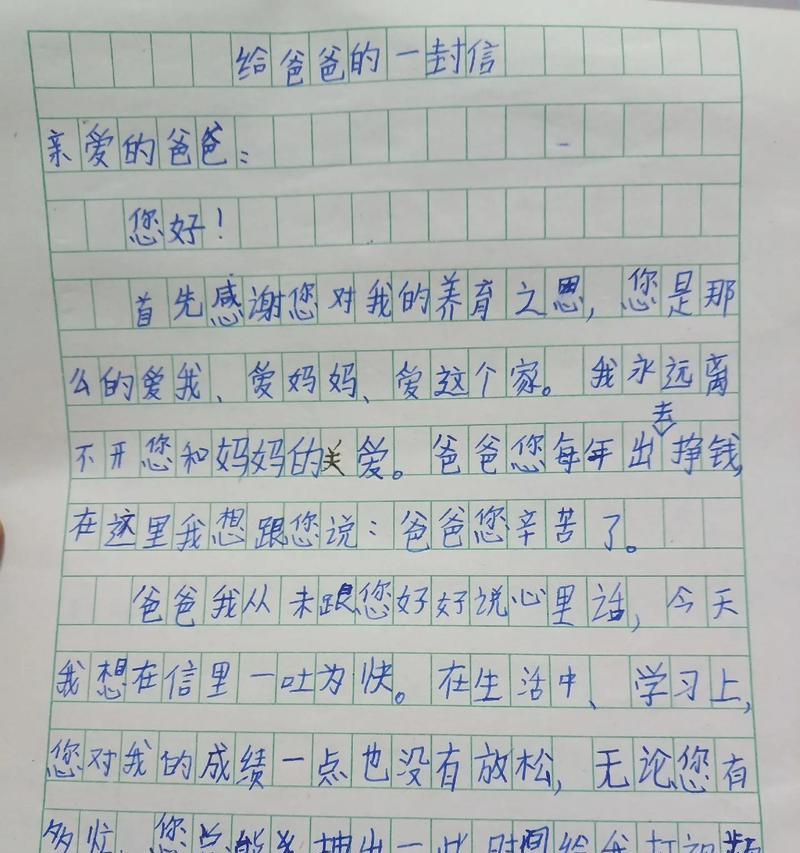 给爸爸的一封信
亲爱的爸爸：
您好！
首先感谢您对我的养育之恩，您是那
么的爱我、爱妈妈、爱这个家。我永远离
不开您和妈妈的关爱。爸爸您每年出去挣钱，
在这里我想跟您说：爸爸您辛苦了。
爸爸我从未跟您好好说心里话，今天
我想在信里一吐为快。在生活中、学习上，
您对我的成绩一点也没有放松，无论您有
多忙，您总能抽出一些时间给我打视频